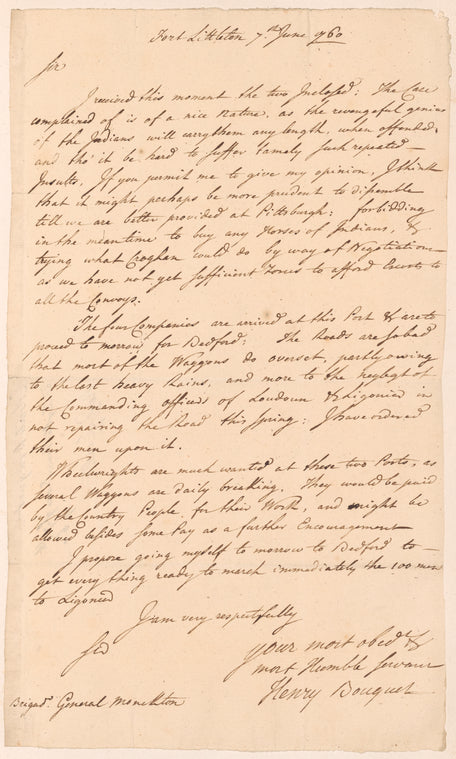 Fort Littleton 7th June 1760
Sir
I received this moment the two Inclosed: The Case
complained of is of a nice Nature, as the revengeful genius
of the Indians will carry them any length, when offended;
and tho' it be hard to suffer tamely such repeated
Insults, If you permit me to give my opinion, I think
that it might perhaps be more prudent to dissemble
till we are better provided at Pittsburgh: forbidding
in the mean time to buy any Horses of Indians, &
trying what Croghan could do by way of Negotiation
as we have not yet sufficient Forces to afford Escorts to
all the Convoys.
The four Companies are arrived at this Post & are to
proceed to morrow for Bedford: The Roads are so bad
that most of the Waggons do overset, partly owing
to the last heavy Rains, and more to the Neglegt of
the Commanding officers of Loudoun & Ligonier in
not repairing the Road this Spring: I have ordered
their men upon it.
Wheelwrights are much wanted at these two Posts, as
several Waggons are daily breaking. They would be paid
by the Country People, for their Work, and might be
allowed besides some Pay as a further Encouragement
I propose going myself to morrow to Bedford to
get every thing ready to march immediately the 100 men
to Ligonier
I am very respectfully
Sir
your most obedt &
most Humble Servant
Henry Bouquet
Brigadr. General Monckton